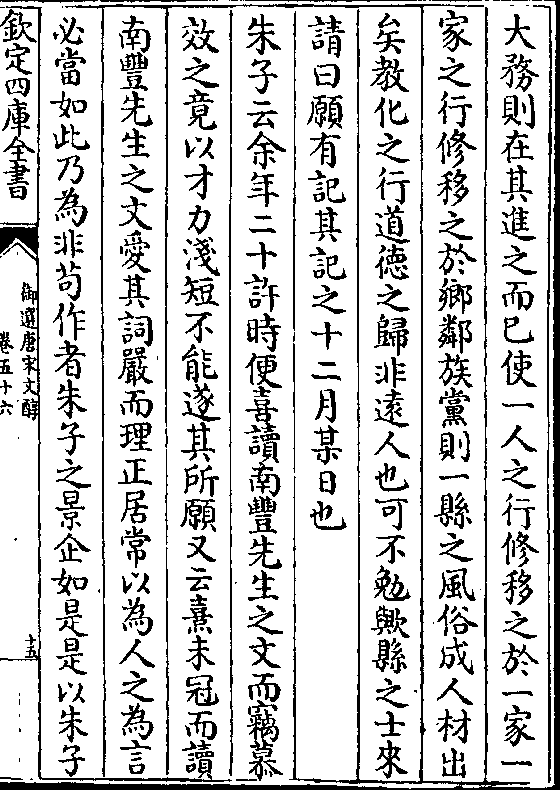 大務則在其進之而已使一人之行修移之於一家一
家之行修移之於鄉鄰族黨則一縣之風俗成人材出
矣教化之行道德之歸非遠人也可不勉歟縣之士來
請曰願有記其記之十二月某日也
朱子云余年二十許時便喜讀南豐先生之文而竊慕
效之竟以才力淺短不能遂其所願又云熹未冠而讀
南豐先生之文愛其詞嚴而理正居常以為人之為言
必當如此乃為非苟作者朱子之景企如是是以朱子
欽定四庫全書
御選唐宋文醇
卷五十六
十五